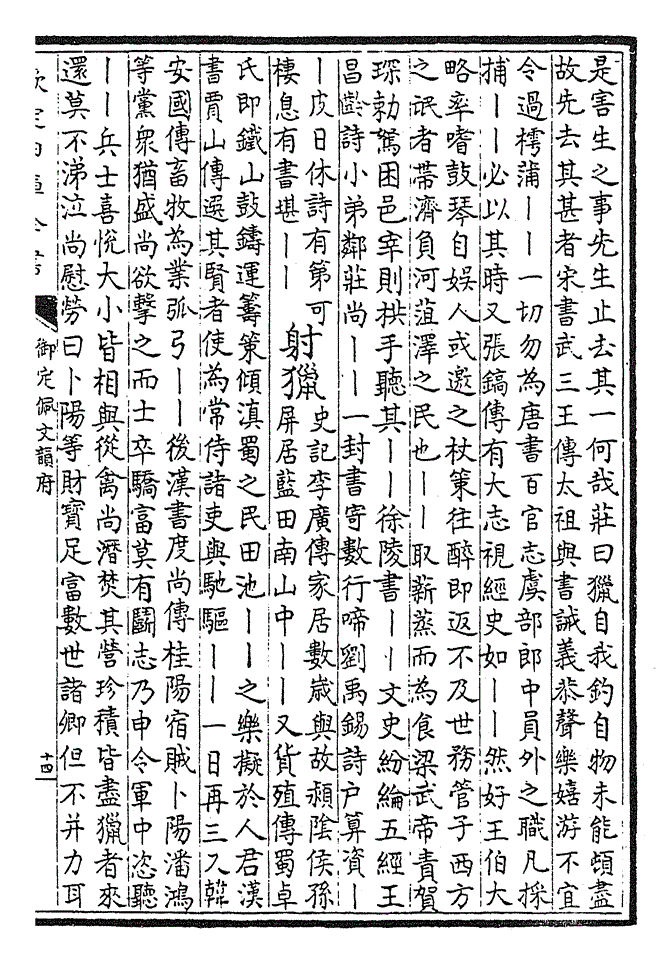 是害生之事先生止去其一何哉莊曰獵自我釣自物未能頓盡
故先去其甚者宋書武三王傳太祖與書誡義恭聲樂嬉游不宜
令過樗蒲丨丨一切勿為唐書百官志虞部郎中員外之職凡採
捕丨丨必以其時又張鎬傳有大志視經史如丨丨然好王伯大
略率嗜鼓琴自娛人或邀之杖策往醉即返不及世務管子西方
之氓者帶濟負河菹澤之民也丨丨取薪蒸而為食梁武帝責賀
琛勅駑困邑宰則拱手聽其丨丨徐陵書丨丨文史紛綸五經王
昌齡詩小弟鄰莊尚丨丨一封書寄數行啼劉禹錫詩户算資丨
丨皮日休詩有第可
棲息有書堪丨丨
射獵
史記李廣傳家居數歲與故潁陰侯孫
屏居藍田南山中丨丨又貨殖傳蜀卓
氏即鐵山鼓鑄運籌策傾滇蜀之民田池丨丨之樂擬於人君漢
書賈山傳選其賢者使為常侍諸吏與馳驅丨丨一日再三入韓
安國傳畜牧為業弧弓丨丨後漢書度尚傳桂陽宿賊卜陽潘鴻
等黨衆猶盛尚欲擊之而士卒驕富莫有鬭志乃申令軍中恣聽
丨丨兵士喜悅大小皆相與從禽尚潛焚其營珍積皆盡獵者來
還莫不涕泣尚慰勞曰卜陽等財寶足富數世諸卿但不并力耳
欽定四庫全書
御定佩文韻府
十四